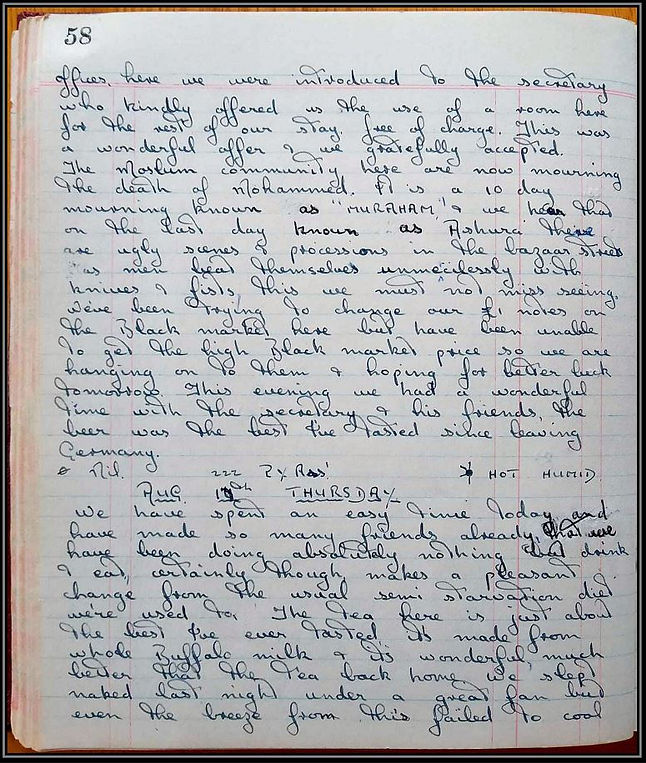 58
offices. here we were introduced to the secretary
who kindly offered us the use of a room here
for the rest of our stay, free of charge. This was
a wonderful offer & we gratefully accepted.
The Moslum community here are now mourning
the death of Mohammed. It is a 10 day
mourning known as "MURAHAM" & we hear that
on the last day known as Ashura there
are ugly scenes & processions in the bazaar streets
as men beat themselves unmercilessly with
knives & fists, this we must not miss seeing.
We've been trying to change our £1 notes on
the Black market here but have been unable
to get the high Black market price so we are
hanging on to them & hoping for better luck
tomorrow. This evening we had a wonderful
time with the secretary & his friends, the
beer was the best I've tasted since leaving
Germany.
Nil. HOT HUMID
AUG. THURSDAY
We have spent an easy time today and
have made so many friends already, that we
have been doing absolutely nothing but drink
& eat, certainly though, makes a pleasant
change from the usual semi starvation diet
we're used to. The tea here is just about
the best I've ever tasted. Its made from
whole Buffalo milk & its wonderful, much
better than the tea back home. We slept
naked last night under a great fan but
even the breeze from this failed to cool